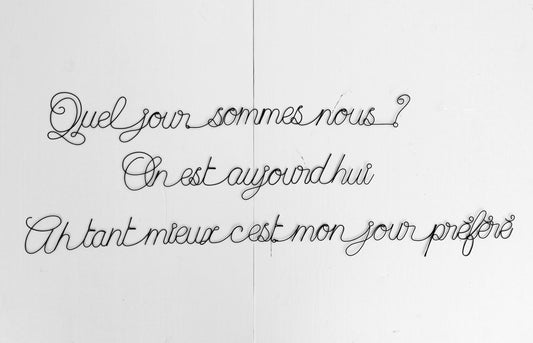 Quel jour sommes nous ?
On est aujourdhui
Ah tant mieux cest mon jour préféré